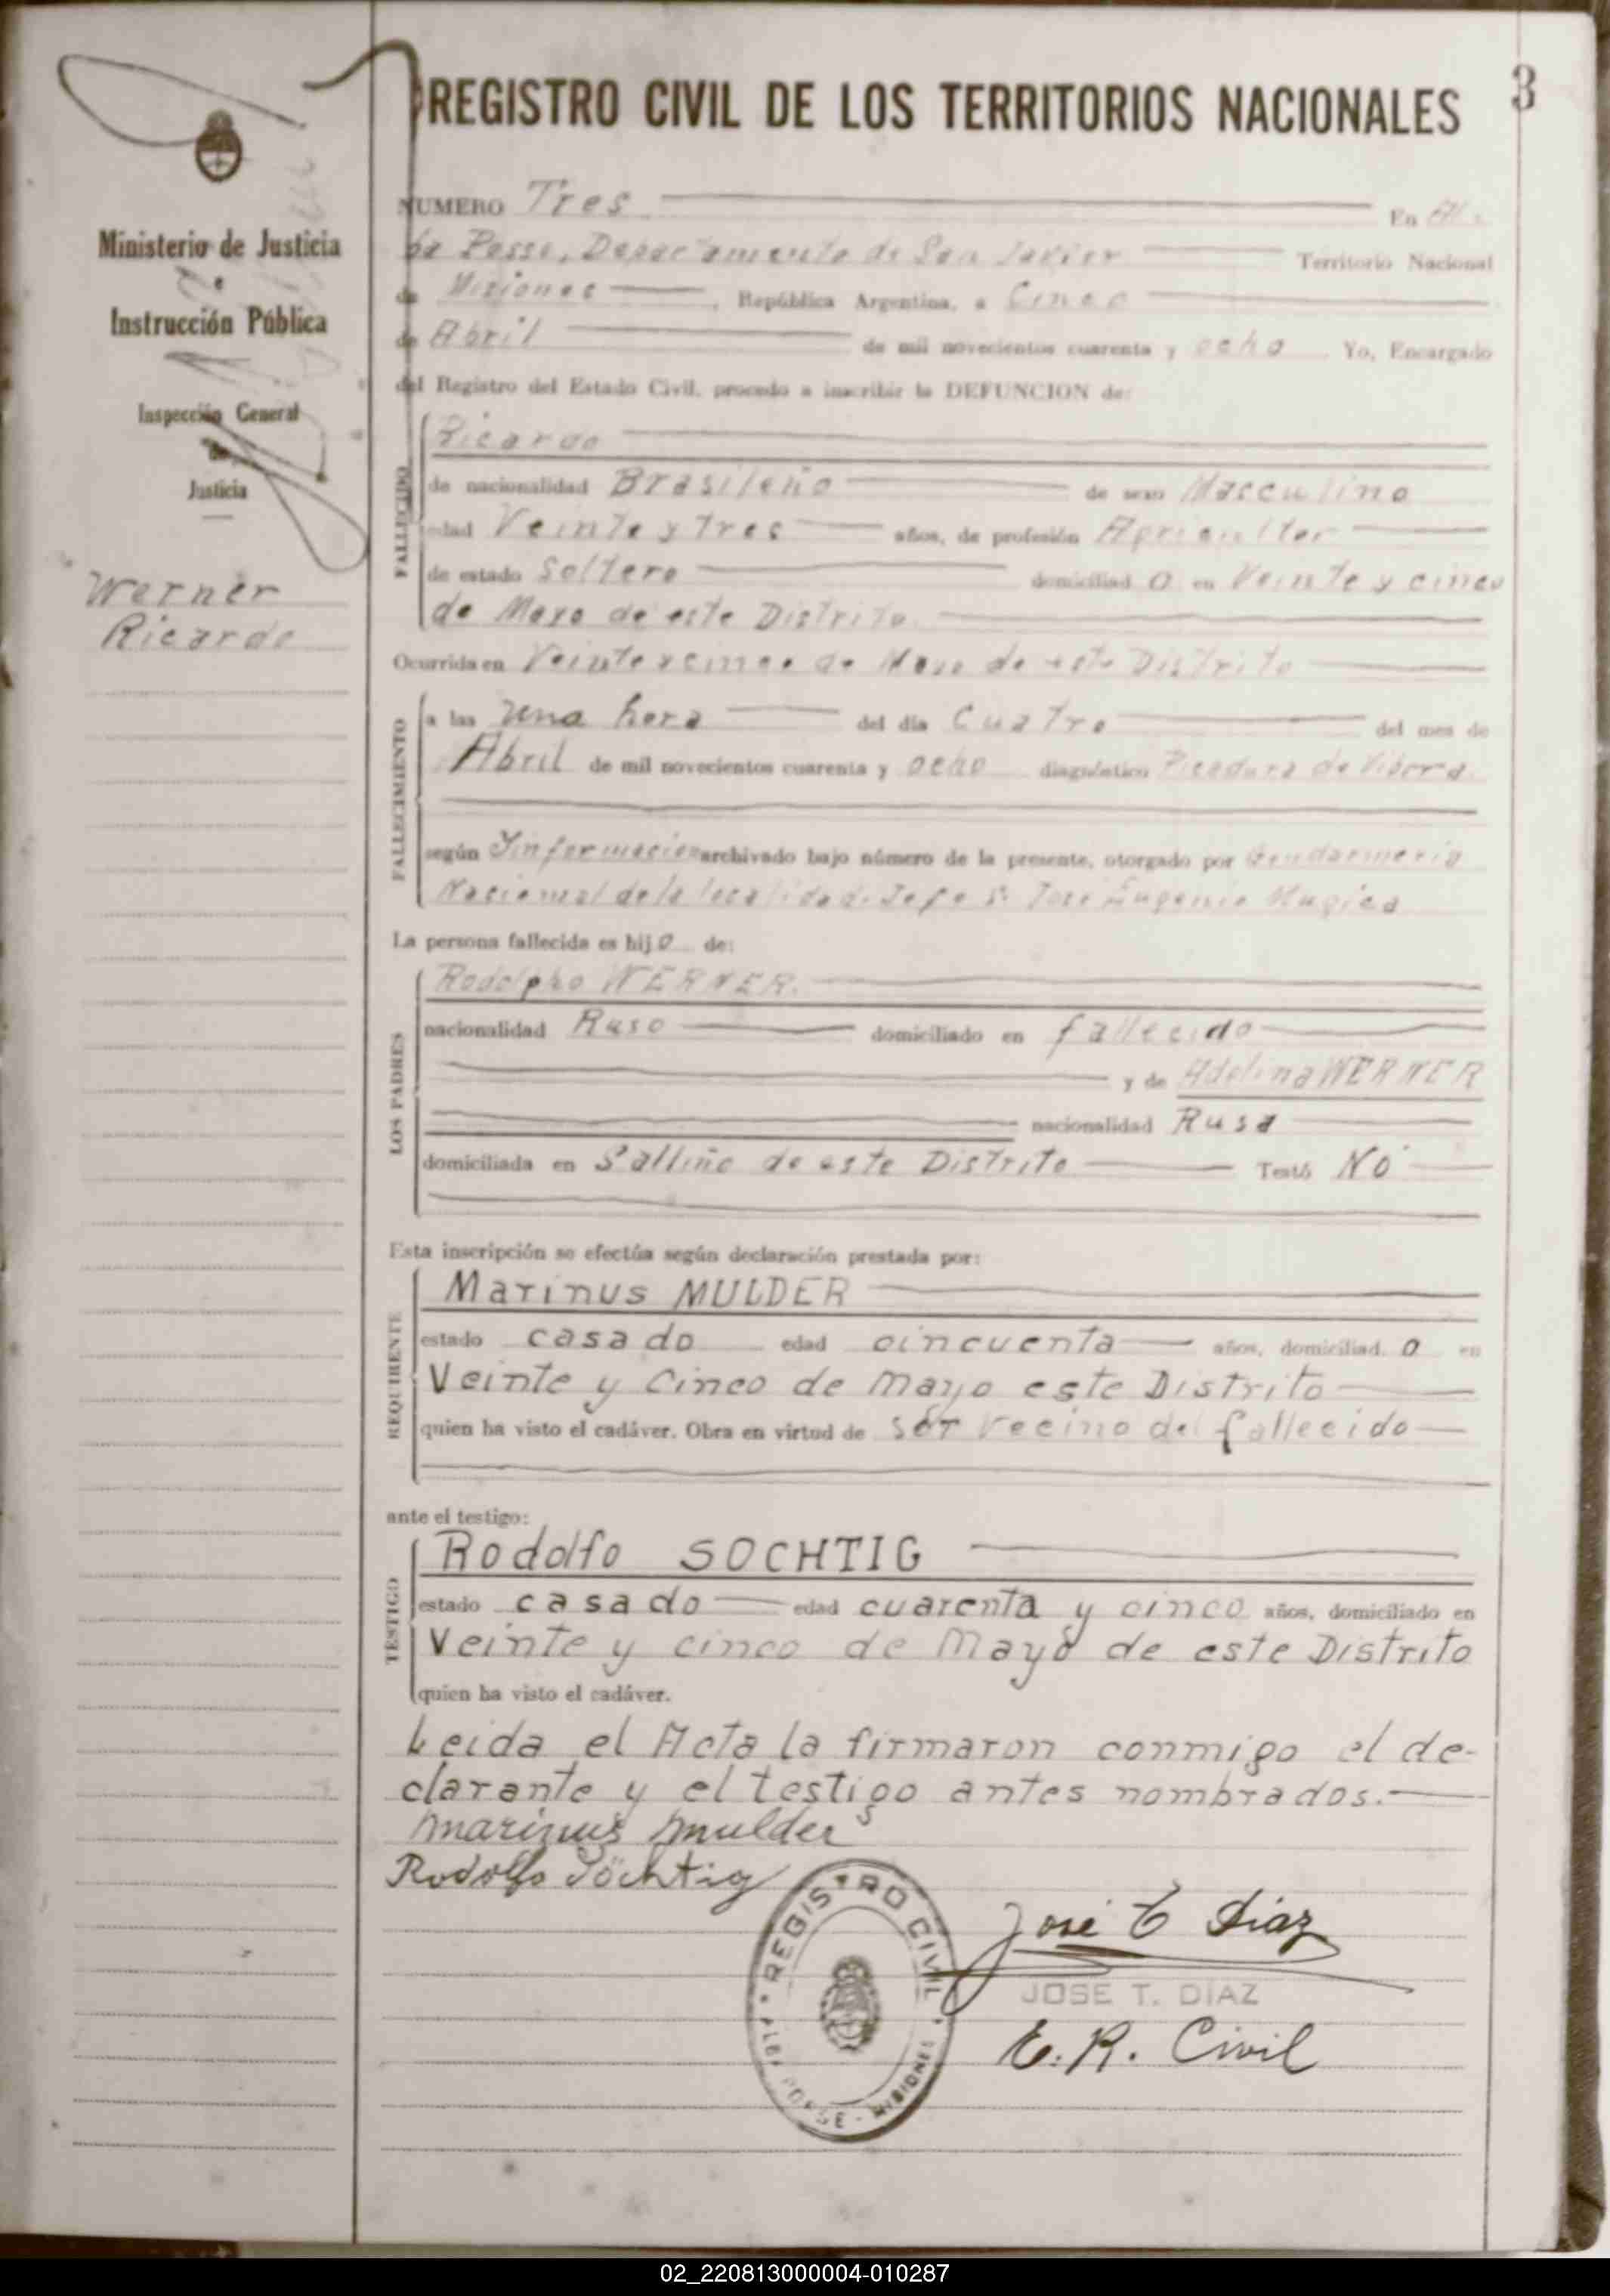 REGISTRO CIVIL DE LOS TERRITORIOS NACIONALES
3
Ministerio de Justicia
e
Instrucción Pública
Inspección General
de
Justicia
Werner
Ricardo
NUMERO Tres En Al-
ba Posse, Departamento de San Javier Territorio Nacional
de Misiones, República Argentina, a Cinco
de Abril de mil novecientos cuarenta y ocho Yo, Encargado
del Registro del Estado Civil, procedo a inscribir la DEFUNCION de:
FALLECIDO
Ricardo
de nacionalidad Brasileño de sexo Masculino
edad Veinte y tres años, de profesión Agricultor
de estado Soltero domiciliad o en Veinte y cinco
de Mayo de este Distrito.
Ocurrida en Veinte y cinco de Mayo de este Distrito
FALLECIMIENTO
a las Una hora del día Cuatro del mes de
Abril de mil novecientos cuarenta y ocho diagnóstico Picadura de Vibora.
según Informacion archivado bajo número de la presente, otorgado por Gendarmeria
Nacional de la localidad. Jefe Sr José Eugenio Mugica
La persona fallecida es hij o de:
LOS PADRES
Rodolpho WERNER.
nacionalidad Ruso domiciliado en fallecido
y de Adelina WERNER
nacionalidad Rusa
domiciliada en de este Distrito Testó No
Esta inscripción se efectúa según declaración prestada por:
REQUIRENTE
Marinus MULDER
estado casado edad cincuenta años, domiciliad o en
Veinte y Cinco de Mayo este Distrito
quien ha visto el cadáver. Obra en virtud de ser Vecino del fallecido
ante el testigo:
TESTIGO
Rodolfo SOCHTIG
estado casado edad cuarenta y cinco años, domiciliado en
Veinte y cinco de Mayo de este Distrito
quien ha visto el cadáver.
Leida el Acta la firmaron conmigo el de-
clarante y el testigo antes nombrados.
Marinus Mulder
Rodolfo Söchtig
REGISTRO CIVIL
ALBA POSSE - MISIONES
José T Diaz
JOSE T. DIAZ
E. R. Civil
02_220813000004-010287